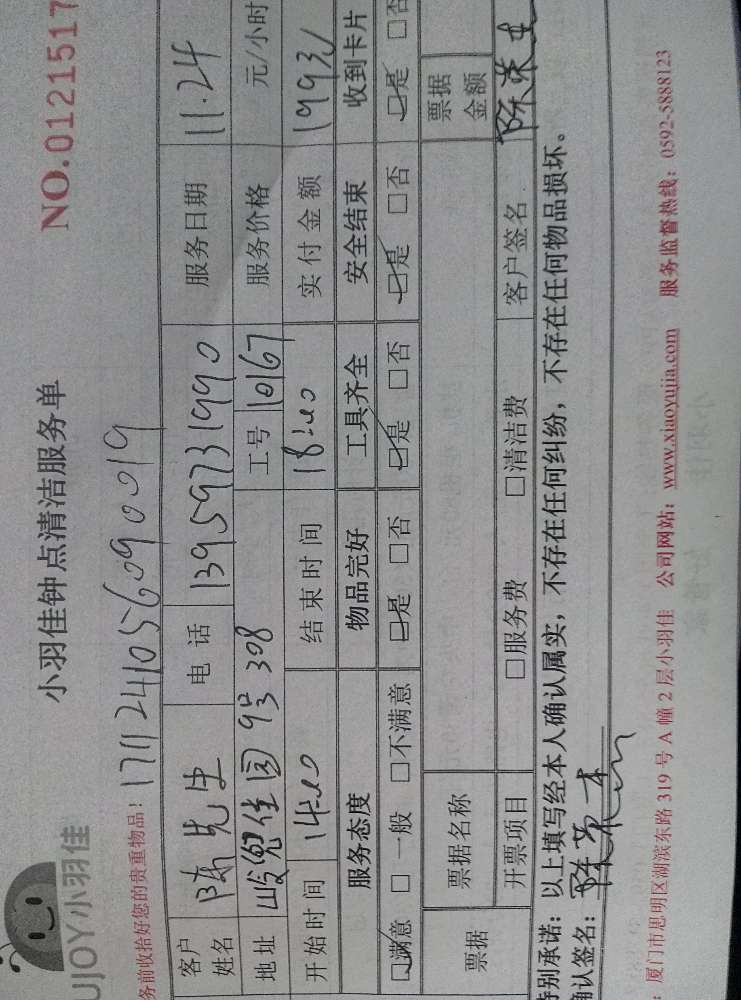 UJOY小羽佳
小羽佳钟点清洁服务单
NO.0121517
务前收拾好您的贵重物品！ 171124105609 0019
客户姓名 陈先生 电话 13959731990 服务日期 11.24
地址 佳园 9号 308 工号 10167 服务价格 元/小时
开始时间 14:00 结束时间 18:00 实付金额
服务态度 物品完好 工具齐全 安全结束 收到卡片
☑满意 □一般 □不满意 ☑是 □否 ☑是 □否 ☑是 □否 ☑是 □否
票据 票据名称 票据金额
开票项目 □服务费 □清洁费 客户签名
特别承诺：以上填写经本人确认属实，不存在任何纠纷，不存在任何物品损坏。
确认签名：
厦门市思明区湖滨东路 319 号 A 幢 2 层小羽佳 公司网站：www.xiaoyujia.com 服务监督热线：0592-5888123